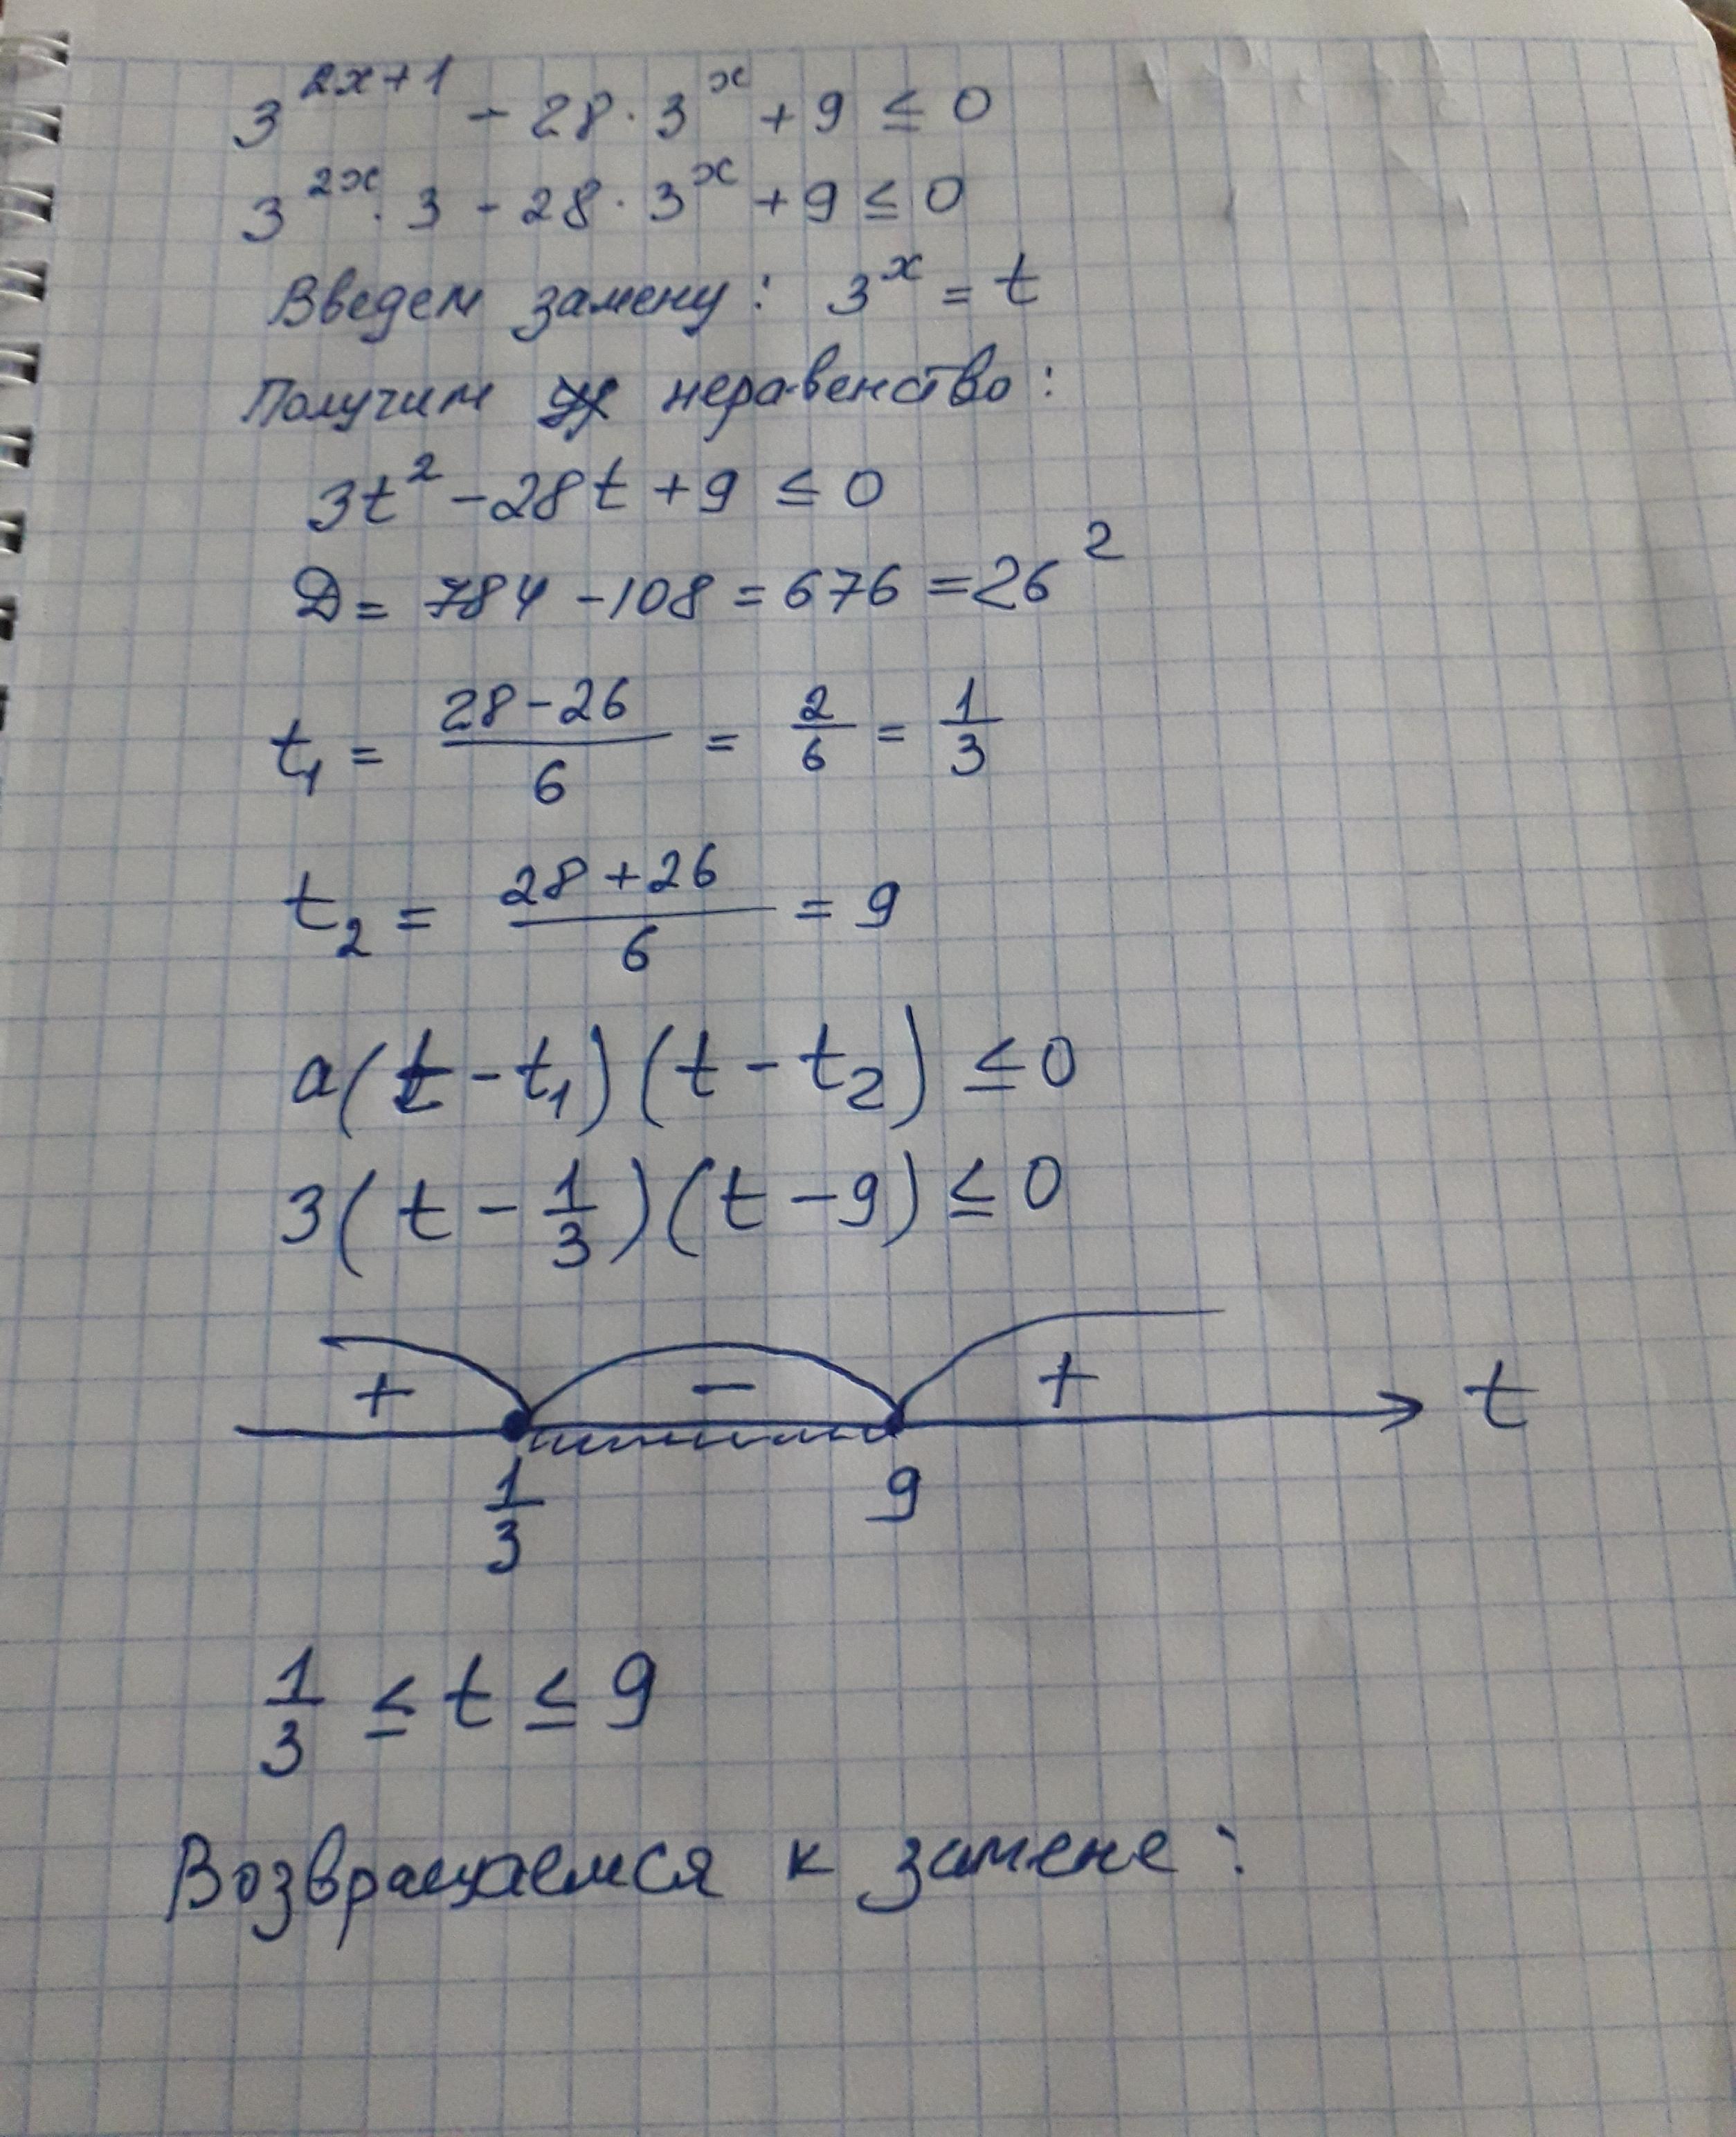 3^{2x+1} - 28 · 3^x + 9 ≤ 0
3^{2x} · 3 - 28 · 3^x + 9 ≤ 0
Введем замену: 3^x = t
Получим неравенство:
3t² - 28t + 9 ≤ 0
D = 784 - 108 = 676 = 26²
t₁ = (28-26)/6 = 2/6 = 1/3
t₂ = (28+26)/6 = 9
a(t - t₁)(t - t₂) ≤ 0
3(t - 1/3)(t - 9) ≤ 0
+ - + t
1/3 9
1/3 ≤ t ≤ 9
Возвращаемся к замене: